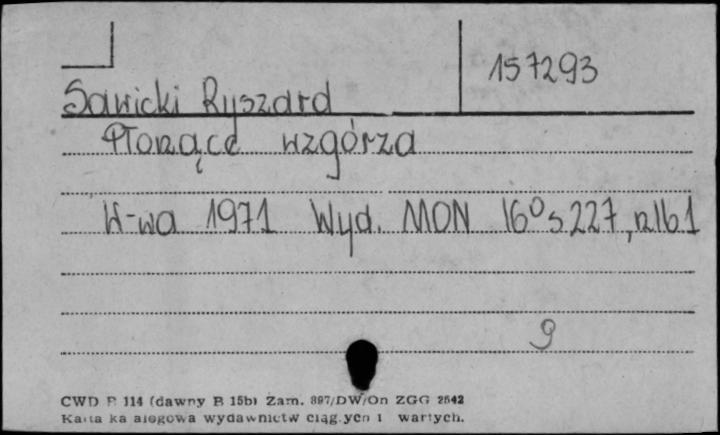 157293
Sawicki Ryszard
Płonące wzgórza
W-wa 1971 Wyd. MON 16⁰ s 227, nlb 1
9
CWD P 114 (dawny B 15b) Zam. 897/DW/On ZGG 2542
Karta ka alogowa wydawnictw ciąg.ych i wartych.